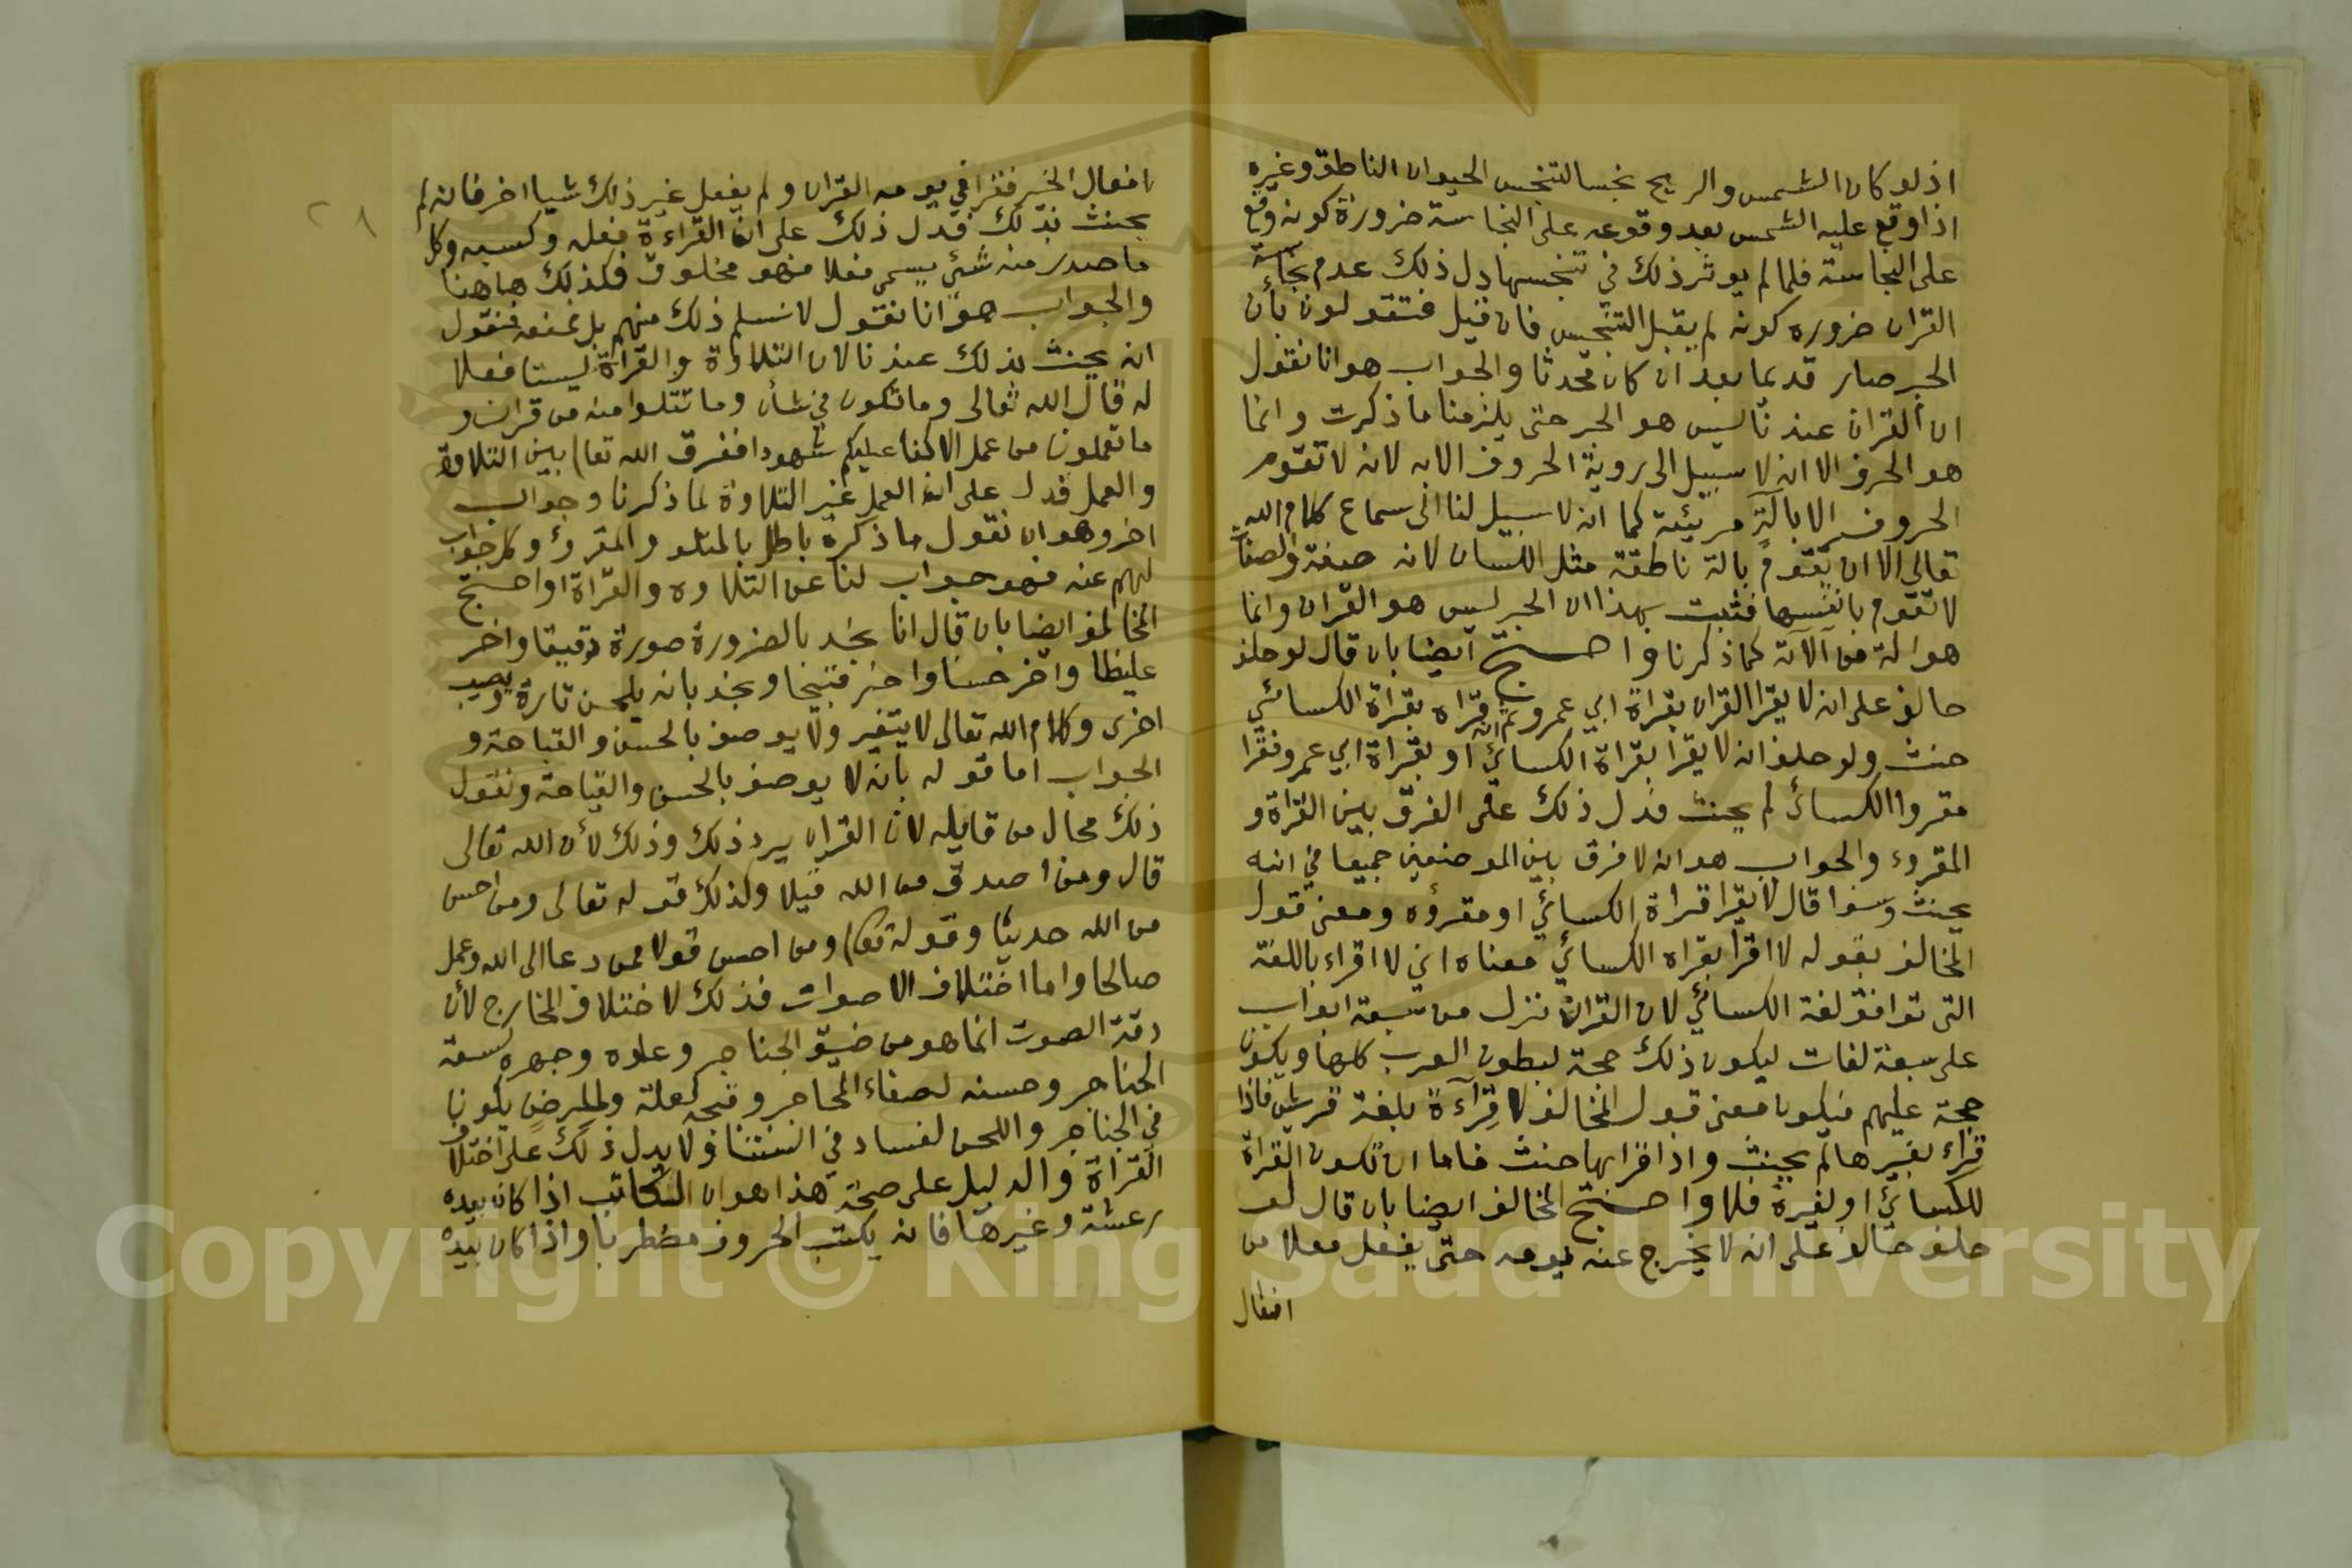 اذ لو كان الشمس والريح نجسا لتنجس الحيوان الناطق وغيره
اذا وقع عليه الشمس بعد وقوعه على النجاسة ضرورة كونه وقع
على النجاسة فلما لم يوثر ذلك في تنجسها دل ذلك عدم نجاسة
القران ضروره كونه لم يقبل التنجيس فان قيل فتقولون بأن
الحبر صار قديما بعد ان كان محدثا والجواب هو انا نقول
ان القران عندنا ليس هو الحبر حتى يلزمنا ما ذكرت وانما
هو الحرف الا انه لا سبيل الى روية الحروف الا به لانه لا تقوم
الحروف الا بالة مريئة كما انه لا سبيل لنا الى سماع كلام الله
تعالى الا ان يقوم بالة ناطقة مثل اللسان لانه صفة والصفات
لا تقوم بانفسها فثبت بهذا ان الحبر ليس هو القران وانما
هو الة من آلاته كما ذكرنا واحتج ايضا بان قال لو حلف
حالف على انه لا يقرا القران بقراة ابي عمرو ثم انه قراه بقراة الكسائي
حنث ولو حلف انه لا يقرا بقراة الكسائي او بقراة ابي عمرو فقرا
مقروا الكسائي لم يحنث فدل ذلك على الفرق بين القراة و
المقروء والجواب هو انه لا فرق بين الموضعين جميعا في انه
يحنث وسوا قال لا يقرا قراة الكسائي او مقرؤه ومعنى قول
المخالف بقوله لا اقرا بقراه الكسائي معناه اني لا اقراء باللغة
التي توافق لغة الكسائي لان القران نزل من سبعة ابواب
على سبعة لغات ليكون ذلك حجة لبطون العرب كلها ويكون
حجة عليهم فيكون معنى قول المخالف لا قِرَآءةً بلغة قريش فاذا
قراء بغيرها لم يحنث واذا قرا بها حنث فاما ان تكون القراة
للكسائي او لغيرة فلا واحتج المخالف ايضا بان قال لو
حلف حالف على انه لا يخرج عنه يومه حتى يفعل فعلا من
افعال
٢٨
افعال الخير فقرا في يومه القران ولم يفعل غير ذلك شيا اخر فانه لم
يحنث بذلك فدل ذلك على ان القراءة فعله وكسبه وكل
ما صدر منه شئ يسمى فعلا فهو مخلوق فكذلك هاهنا
والجواب هو انا نقول لا نسلم ذلك منهم بل نمنعه فنقول
انه يحنث بذلك عندنا لان التلاوة والقراة ليستا فعلا
له قال الله تعالى وما تكون في شأن وما تتلوا منه من قران و
ما تعملون من عمل الا كنا عليكم شهودا ففرق الله تعا) بين التلاوة
والعمل فدل على ان العمل غير التلاوة لما ذكرنا وجواب
اخر وهو ان نقول ما ذكره باطل بالمتلو والمقرؤ وكل جواب
لهم عنه فهو جواب لنا عن التلاوه والقراة او احتج
المخالف ايضا بان قال انا نجد بالضرورة صورة دقيقا واخر
غليظا واخر حسنا واخر قبيحا ونجد بانه يلحن تارة ويصيب
اخرى وكلام الله تعالى لا يتغير ولا يوصف بالحسن والقباحة و
الجواب اما قوله بانه لا يوصف بالحسن والقباحة ونقول
ذلك محال من قايله لان القران يرد ذلك وذلك لأن الله تعالى
قال ومن اصدق من الله قيلا وكذلك قوله تعالى ومن احسن
من الله حديثا وقوله تعا) ومن احسن قولا ممن دعا الى الله وعمل
صالحا واما اختلاف الاصوات فذلك لاختلاف المخارج لأن
دقة الصوت انما هو من ضيق الحناجر وعلوه وجهره لسعة
الحناجر وحسنه لصفاء المحاجر وقبحه لعلة ولمرض يكونا
في الحناجر واللحن لفساد في السنتنا ولا يدل ذلك على اختلاف
القراة والدليل على صحة هذا هو ان الكاتب اذا كان بيده
رعشة وغيرها فانه يكتب الحروف مضطربا واذا كان بيده
Copyright © King Saud University